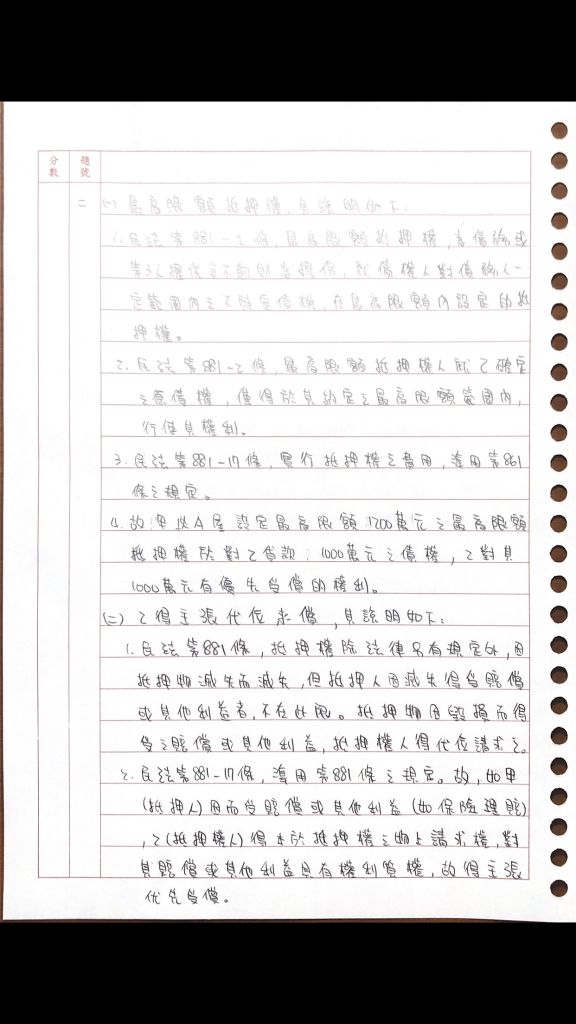 分數 題號
二 (一) 最高限額抵押權,其說明如下:
1.民法第881-1條,最高限額抵押權,為債務人或
第3人提供其不動財為擔保,就債權人對債務人一
定範圍內之不特定債權,在最高限額內設定的抵
押權。
2.民法第881-2條,最高限額抵押權人就已確定
之原債權,僅得於其約定之最高限額範圍內,
行使其權利。
3.民法第881-17條,實行抵押權之費用,準用第861
條之規定。
4.故甲以A屋設定最高限額1200萬元之最高限額
抵押權於對乙貸款1000萬元之債權,乙對其
1000萬元有優先受償的權利。
(二) 乙得主張代位求償,其說明如下:
1.民法第881條,抵押權除法律另有規定外,因
抵押物滅失而滅失,但抵押人因滅失得受賠償
或其他利益者,不在此限。抵押物因毀損而得
受之賠償或其他利益,抵押權人得代位請求之。
2.民法第881-17條,準用第881條之規定。故,如甲
(抵押人)因而受賠償或其他利益(如保險理賠)
,乙(抵押權人)得本於抵押權之物上請求權,對
其賠償或其他利益具有權利質權,故得主張
优先受償。